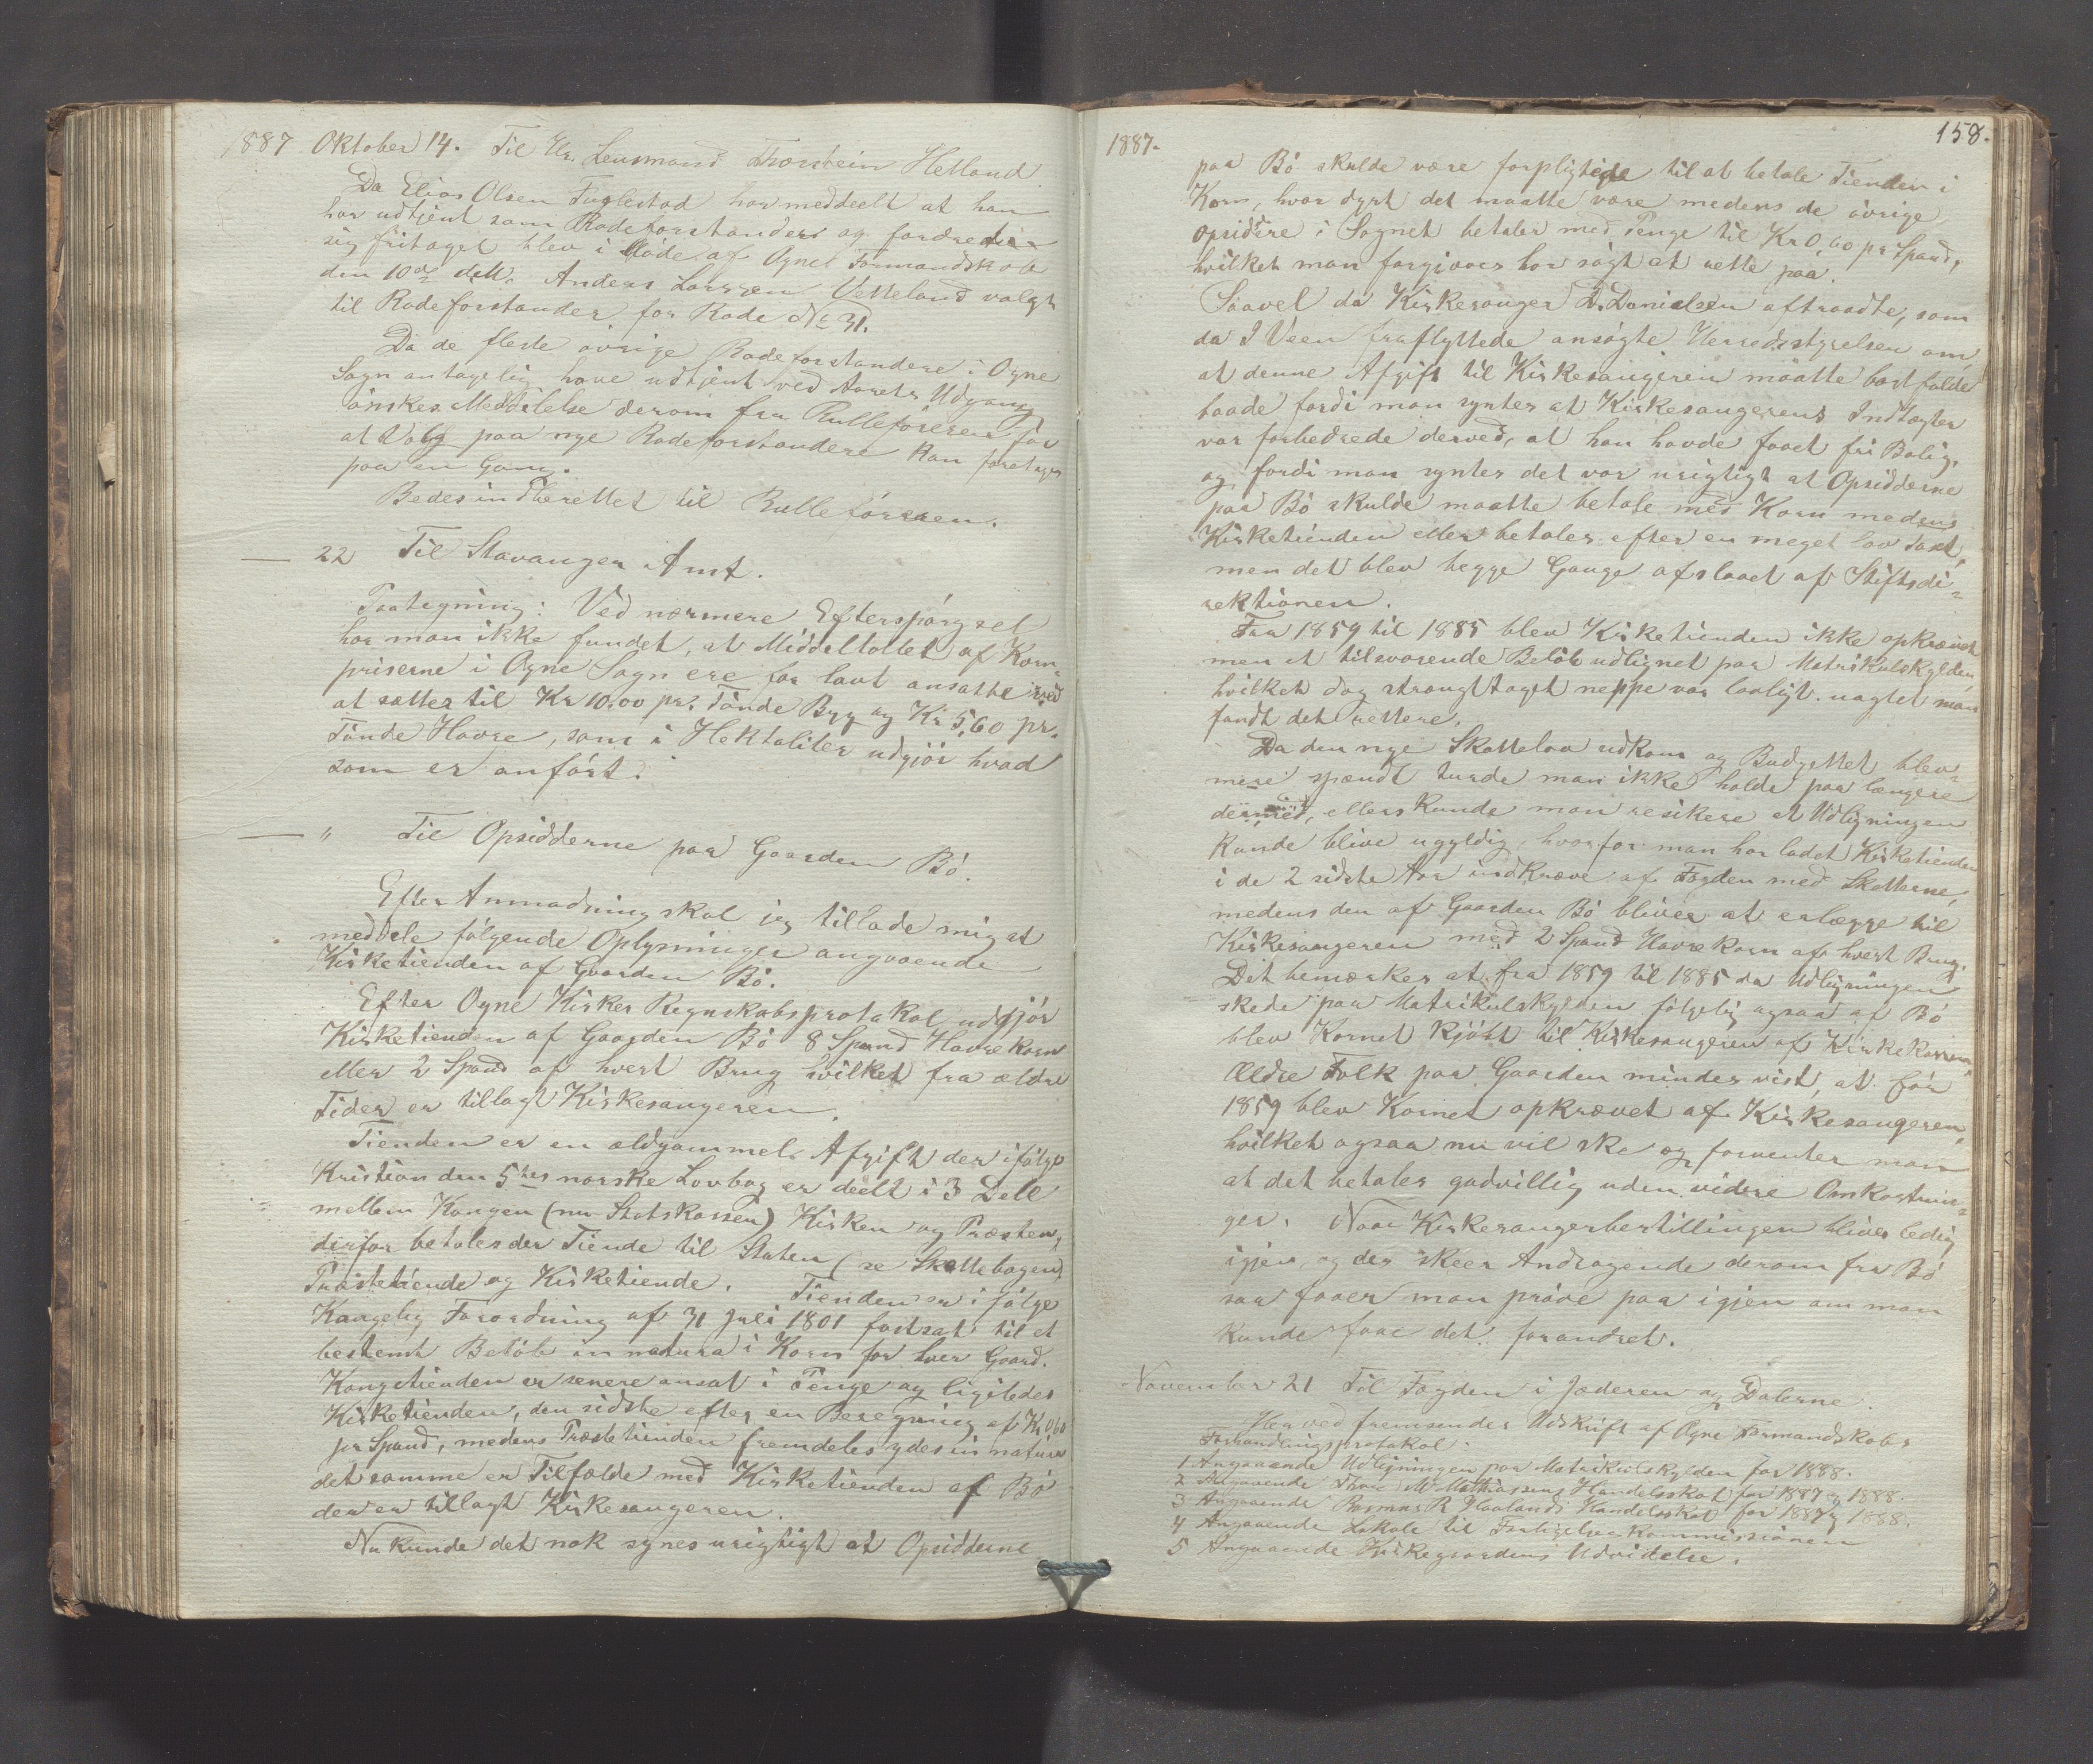 1887 Oktober 14. Til Hr. Lensmand Thorstein Hetland
Da Elias Olsen Fuglestad har meddeelt at han
har udtjent som Rodeforstander og fordrer
sig fritaget blev i Møde af Ogne Formandskab
den 10de ds. Anders Larssen Vetteland valgt
til Rodeforstander for Rode No 31.
Da de fleste øvrige Rodeforstandere i Ogne
Sogn antagelig have udtjent ved Aarets Udgang
ønskes Meddelelse derom fra Rulleføreren før
at Valg paa nye Rodeforstandere kan foretages
paa en Gang.
Bedes indberettet til Rulleføreren.
— 22 Til Stavanger Amt.
Paategning: Ved nærmere Efterspørgsel
har man ikke fundet, at Middeltallet af Korn-
priserne i Ogne Sogn ere for lavt ansatte ved
at sættes til Kr 10.00 pr. Tønde Byg og Kr 5,60 pr.
Tønde Havre, som i Hektoliter udgjør hvad
som er anført.
— " Til Opsidderne paa Gaarden Bø.
Efter Anmodning skal jeg tillade mig at
meddele følgende Oplysninger angaaende
Kirketienden af Gaarden Bø.
Efter Ogne Kirkes Regnskabsprotokol udgjør
Kirketienden af Gaarden Bø 8 Spand Havrekorn
eller 2 Spand af hvert Brug hvilket fra ældre
Tider er tillagt Kirkesangeren.
Tienden er en ældgammel Afgift der ifølge
Kristian den 5tes norske Lovbog er deelt i 3 Dele
mellem Kongen (nu Statskassen) Kirken og Præsten,
derfor betales der Tiende til Staten (se Skattebogen)
Præstetiende og Kirketiende. Tienden er i følge
Kongelig Forordning af 31 Juli 1801 fastsat til et
bestemt Beløb in natura i Korn for hver Gaard.
Kongetienden er senere ansat i Penge og ligeledes
Kirketienden, den sidste efter en Beregning af Kr 0,60
pr Spand, medens Præstetienden fremdeles ydes in natura
det samme er Tilfælde med Kirketienden af Bø
der er tillagt Kirkesangeren.
Nu kunde det nok synes urigtigt at Opsidderne
1887.
158.
paa Bø skulde være forpligtede til at betale Tienden i
Korn, hvor dyrt det maatte være medens de øvrige
Opsiddere i Sognet betaler med Penge til Kr 0,60 pr Spand,
hvilket man forgjæves har søgt at rette paa.
Saavel da Kirkesanger D. Danielsen aftraadte, som
da I Veen fraflyttede ansøgte Herredsstyrelsen om,
at denne Afgift til Kirkesangeren maatte bortfalde
baade fordi man syntes at Kirkesangerens Indtægter
var forbedrede derved, at han havde faaet fri Bolig,
og fordi man syntes det var urigtigt at Opsidderne
paa Bø skulde maatte betale med Korn medens
Kirketienden ellers betales efter en meget lav Taxt,
men det blev begge Gange afslaaet af Stiftsdi-
rektionen.
Fra 1859 til 1885 blev Kirketienden ikke opkrævet
men et tilsvarende Beløb udlignet paa Matrikulskylden,
hvilket dog strængt taget neppe var lovligt uagtet man
fandt det rettere.
Da den nye Skattelov udkom og Budgettet blev
mere spændt turde man ikke holde paa længere
dermed, ellers kunde man resikere at Udligningen
kunde blive ugyldig, hvorfor man har ladet Kirketienden
i de 2 sidste Aar indkræve af Fogden med Skatterne,
medens den af Gaarden Bø bliver at erlægge til
Kirkesangeren med 2 Spand Havrekorn af hvert Brug.
Det bemærkes at fra 1859 til 1885 da Udligningen
skede paa Matrikulskylden følgelig ogsaa af Bø
blev Kornet kjøbt til Kirkesangeren af Kirkekassen.
Ældre Folk paa Gaarden mindes vist, at før
1859 blev Kornet opkrævet af Kirkesangeren,
hvilket ogsaa nu vil ske og forventer man
at det betales godvillig uden videre Omkostnin-
ger. Naar Kirkesangerbestillingen bliver ledig
igjen, og der skeer Andragende derom fra Bø
saa faaer man prøve paa igjen om man
kunde faae det forandret.
November 21 Til Fogden i Jæderen og Dalerne.
Herved fremsendes Udskrift af Ogne Formandskabs
Forhandlingsprotokol:
1 Angaaende Udligningen paa Matrikulskylden for 1888.
2 Angaaende Thore M Mathiassens Handelsskat for 1887 og 1888.
3 Angaaende Rasmus R Haalands Handelsskat for 1887 og 1888.
4 Angaaende Lokale til Forligelseskommissionen
5 Angaaende Kirkegaardens Udvidelse.